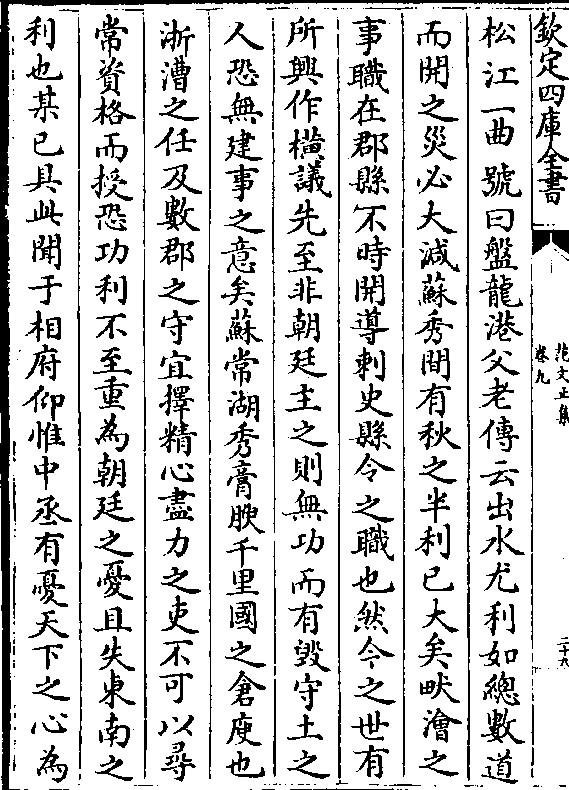 欽定四庫全書
范文正集
卷九
二十九
松江一曲號曰盤龍港父老傳云出水尤利如總數道
而開之災必大減蘇秀間有秋之半利已大矣畎澮之
事職在郡縣不時開導刺史縣令之職也然今之世有
所興作橫議先至非朝廷主之則無功而有毀守土之
人恐無建事之意矣蘇常湖秀膏腴千里國之倉庾也
浙漕之任及數郡之守宜擇精心盡力之吏不可以尋
常資格而授恐功利不至重為朝廷之憂且失東南之
利也某已具此聞于相府仰惟中丞有憂天下之心為